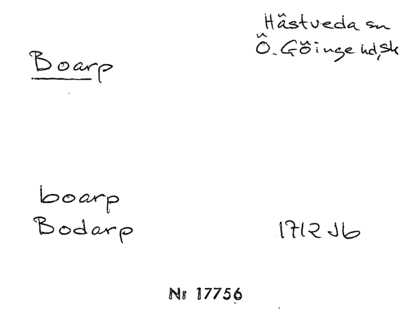 Hästveda sn
Ö. Göinge hd, Sk
Boarp
boarp
Bodarp 1712 Jb
Nr 17756